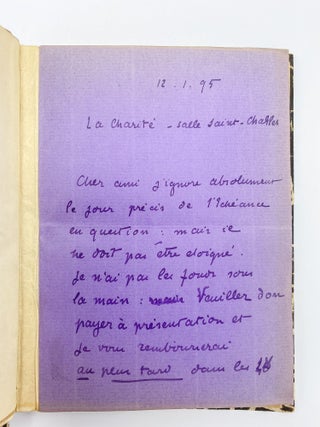 12.1.95
La Charité - Salle Saint-Charles
Cher ami j'ignore absolument
le jour précis de l'échéance
en question : mais il
ne doit pas être éloigné.
Je n'ai pas les fonds sous
la main : Veuillez donc
payer à présentation et
je vous rembourserai
au plus tard dans les